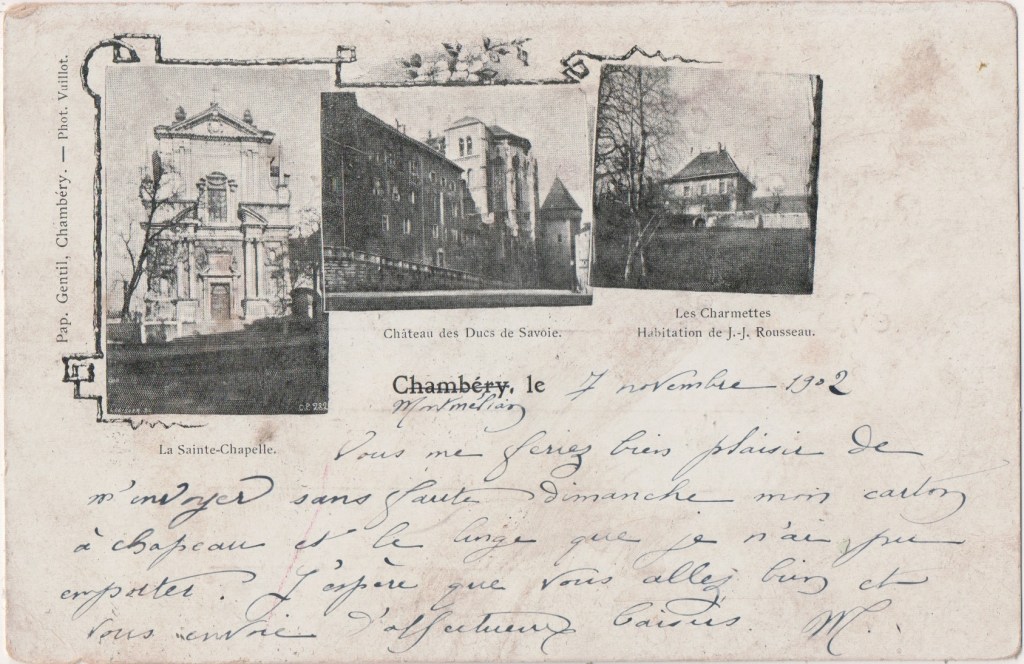 Pap. Gentil, Chambéry. — Phot. Vuillot.
C.P. 232
La Sainte-Chapelle.
Château des Ducs de Savoie.
Les Charmettes
Habitation de J.-J. Rousseau.
Chambéry, le 7 novembre 1902
Montmélian
Vous me feriez bien plaisir de
m'envoyer sans faute dimanche mon carton
à chapeau et le linge que je n'ai pu
emporter. J'espère que vous allez bien et
vous envoie d'affectueux baisers. M.